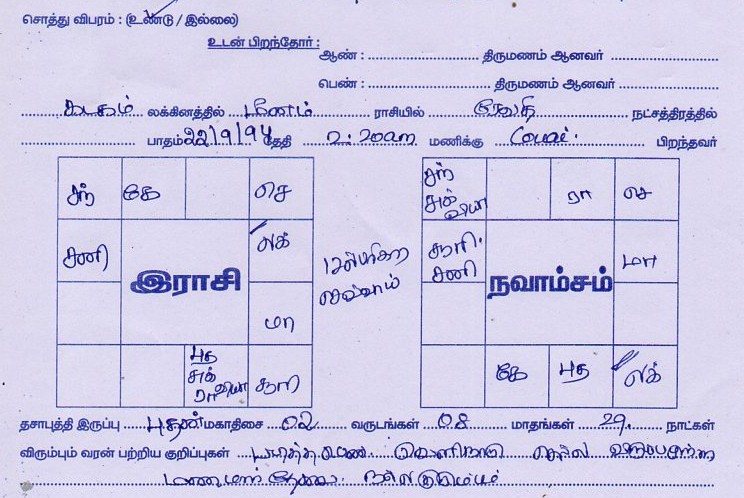 சொத்து விபரம் : (உண்டு / இல்லை)
உடன் பிறந்தோர் :
ஆண் : திருமணம் ஆனவர்
பெண் : திருமணம் ஆனவர்
கடகம் லக்கினத்தில் மீனம் ராசியில் ரேவதி நட்சத்திரத்தில்
பாதம் 22/9/94 தேதி 2.20am மணிக்கு Covai. பிறந்தவர்
சந் கே செ
சனி லக்
இராசி
மா
புத சுக் ரா வியா சூரி
செவ்வாய்
சந் சுக் வியா ரா செ
சூரி. சனி மா
நவாம்சம்
கே புத லக்
தசாபுத்தி இருப்பு புதன் மகாதிசை 02 வருடங்கள் 08 மாதங்கள் 29. நாட்கள்
விரும்பும் வரன் பற்றிய குறிப்புகள் படித்த வெளிநாடு செல்ல
மணமகன் தேவை. நல்ல குடும்பம்